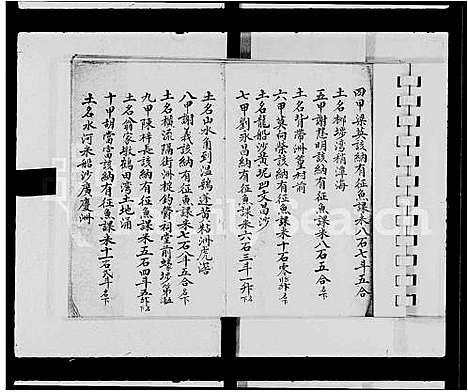 四甲梁英該納有征魚課米八石七斗五合
土名柳埗湾稍潭海
五甲謝慈明該納有征魚課米八石五合名下
土名背帶洲董村前
六甲莫向榮該納有征魚課米十石
土名龍船沙黄坭凹文昌沙
七甲劉永昌納有征魚課米六石三斗一升
土名山水角到溫鵝逢黄粘洲虎
八甲謝義該納有征魚課米七石八斗五合名下
土名橫流隔街洲梃釣
九甲陳梓長該納有征魚課米五石四斗五升
土名翁家墩鶴田湾土地涌
十甲胡當富該納有征魚課米十一石
土名水河禾船沙廣慶洲
FamilySearch